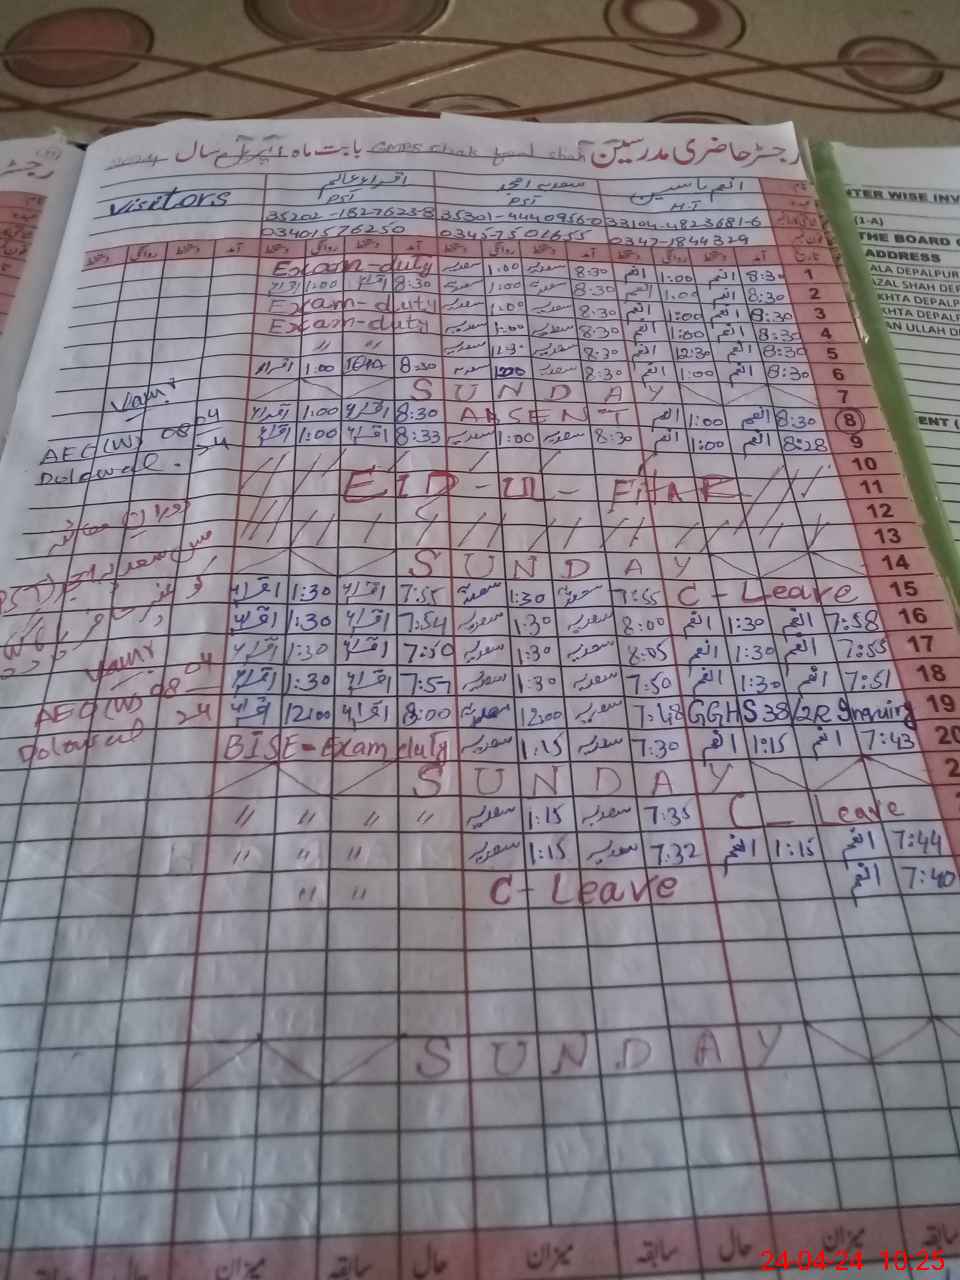 رجسٹر حاضری مدرسین GMPS Chak fazal shah بابت ماہ اپریل سال 2024
انعم یاسین سعدیہ امجد اقراء عالم Visitors
H.T PST PST
33104-4823681-6 35301-4440956-0 35202-1827623-8
0347-1844329 0345-7501655 03401576250
آمد دستخط روانگی دستخط آمد دستخط روانگی دستخط آمد دستخط روانگی دستخط آمد دستخط روانگی دستخط
1 8:30 انعم 1:00 انعم 8:30 سعدیہ 1:00 سعدیہ Exam-duty
2 8:30 انعم 1:00 انعم 8:30 سعدیہ 1:00 سعدیہ 8:30 اقراء 1:00 اقراء
3 8:30 انعم 1:00 انعم 8:30 سعدیہ 1:00 سعدیہ Exam-duty
4 8:30 انعم 1:00 انعم 8:30 سعدیہ 1:00 سعدیہ Exam-duty
5 8:30 انعم 12:30 انعم 8:30 سعدیہ سعدیہ " "
6 8:30 انعم 1:00 انعم 8:30 سعدیہ 1:00 سعدیہ 8:30 1:00 اقراء
7 SUNDAY
8 8:30 انعم 1:00 انعم ABSENT 8:30 اقراء 1:00 اقراء
9 8:28 انعم 1:00 انعم 8:30 سعدیہ 1:00 سعدیہ 8:33 اقراء 1:00 اقراء
AEO (W) 08 04 24
Dolowal
10
11 EID-UL-FITAR
12
13
14 SUNDAY
15 C-Leave 7:55 سعدیہ 1:30 سعدیہ 7:55 اقراء 1:30 اقراء
16 7:58 انعم 1:30 انعم 8:00 سعدیہ 1:30 سعدیہ 7:54 اقراء 1:30 اقراء
17 7:55 انعم 1:30 انعم 8:05 سعدیہ 1:30 سعدیہ 7:50 اقراء 1:30 اقراء
18 7:51 انعم 1:30 انعم 7:50 سعدیہ 1:30 سعدیہ 7:57 اقراء 1:30 اقراء
AEO (W) 08 04 24
Dolowal
19 GGHS 38/2R Inquiry 7:48 سعدیہ 12:00 سعدیہ 8:00 اقراء 12:00 اقراء
20 7:43 انعم 1:15 انعم 7:30 سعدیہ 1:15 سعدیہ BISE-Exam duty
2 SUNDAY
C-Leave 7:35 سعدیہ 1:15 سعدیہ " " " "
7:44 انعم 1:15 انعم 7:32 سعدیہ 1:15 سعدیہ " " "
7:40 انعم C-Leave " "
SUNDAY
سابقہ میزان حال سابقہ میزان حال سابقہ میزان
NTER WISE INV
(1-A)
THE BOARD
ADDRESS
ALA DEPALPUR
AZAL SHAH DEP
KHTA DEPALP
KHTA DEPALP
AN ULLAH D
ENT (
24-04-24 10:25